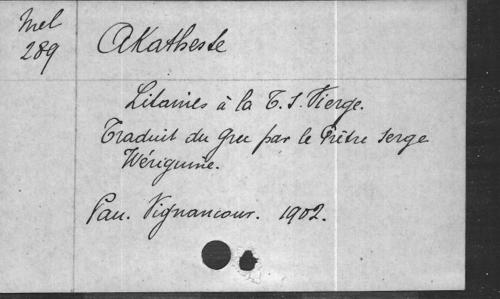 Mel
289
Akatheste
Litanies à la T. S. Vierge.
Traduit du Grec par le Prêtre Serge
Wériguine.
Pau. Vignancour. 1902.